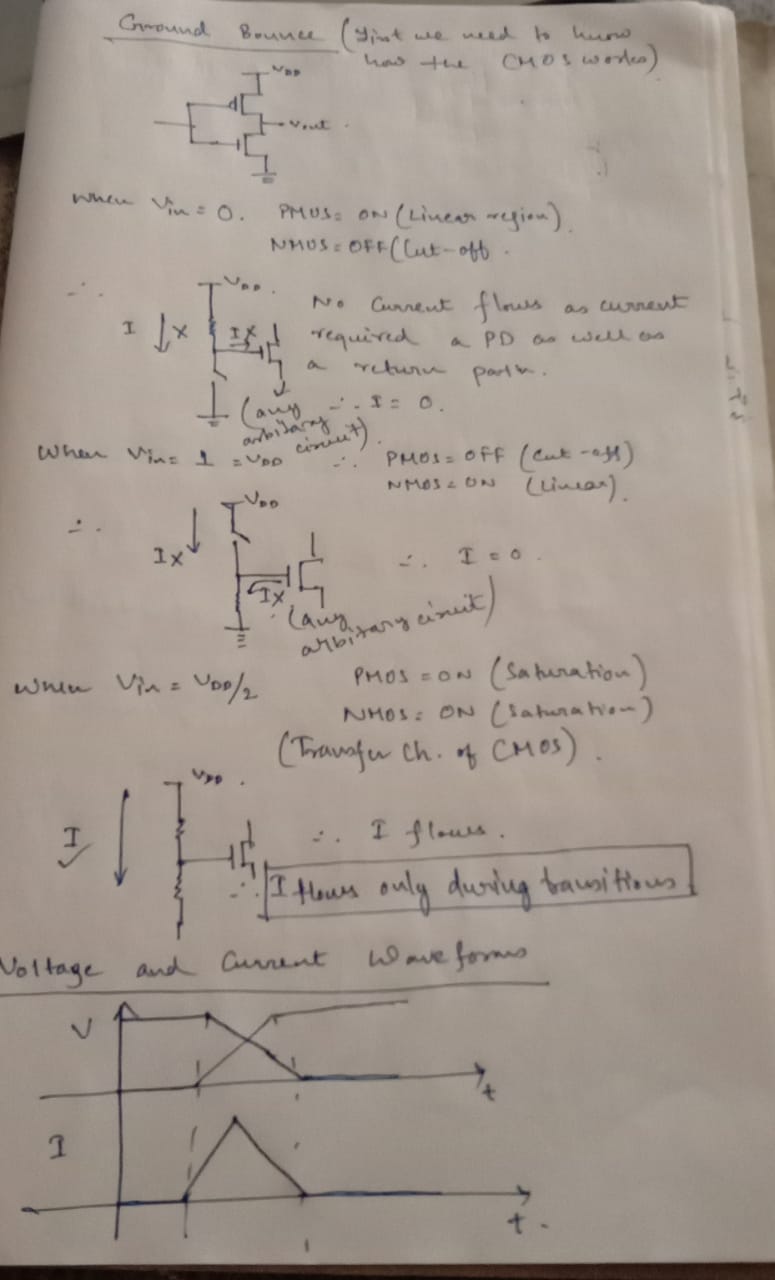 Ground Bounce (First we need to know
how the CMOS works)
VDD
Vout
When Vin = 0. PMOS = ON (Linear region).
NMOS = OFF (Cut-off.
∴
VDD.
I X
IX
No Current flows as current
required a PD as well as
a return path.
∴ I = 0.
(any
arbitary
circuit).
When Vin = 1 = VDD ∴ PMOS = OFF (Cut-off)
NMOS = ON (Linear).
∴
VDD
IX
IX
∴ I = 0.
(any
arbitrary circuit)
When Vin = VDD/2 PMOS = ON (Saturation)
NMOS = ON (Saturation)
(Transfer Ch. of CMOS).
VDD.
I
∴ I flows.
∴ I flows only during transitions
Voltage and Current Waveforms
V
t
I
t.